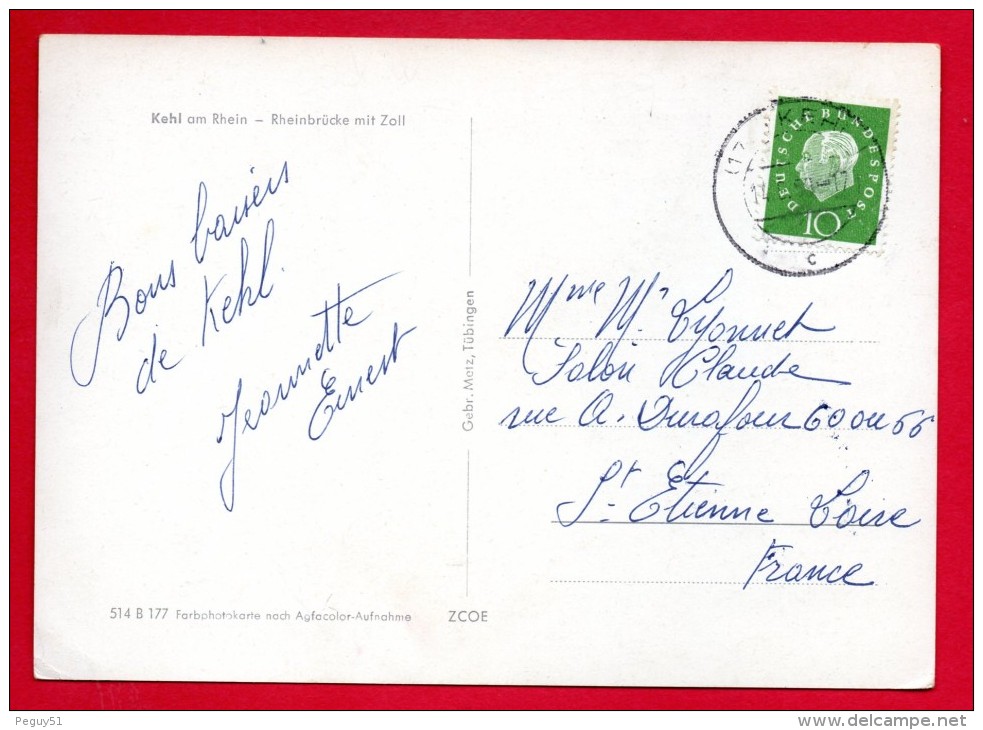 Kehl am Rhein – Rheinbrücke mit Zoll
Bons baisers
de Kehl
Jeannette
Ernest
514 B 177 Farbphotokarte nach Agfacolor-Aufnahme
ZCOE
Gebr. Metz, Tübingen
KEHL
c
DEUTSCHE BUNDESPOST
10
Mme Mr
Salon Claude
rue A. Durafour 60 ou 66
St Etienne Loire
France
Peguy51
www.delcampe.net